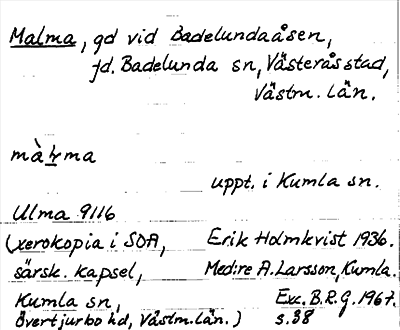 Malma, gd vid Badelundaåsen,
fd. Badelunda sn, Västerås stad,
Västm. län.
màḷma
uppt. i Kumla sn.
Ulma 9116
(xerokopia i SOA, Erik Holmkvist 1936.
särsk. kapsel, Med:re A. Larsson, Kumla.
Kumla sn, Exc. B.R.G. 1967.
Övertjurbo hd, Västm. län.) s. 38